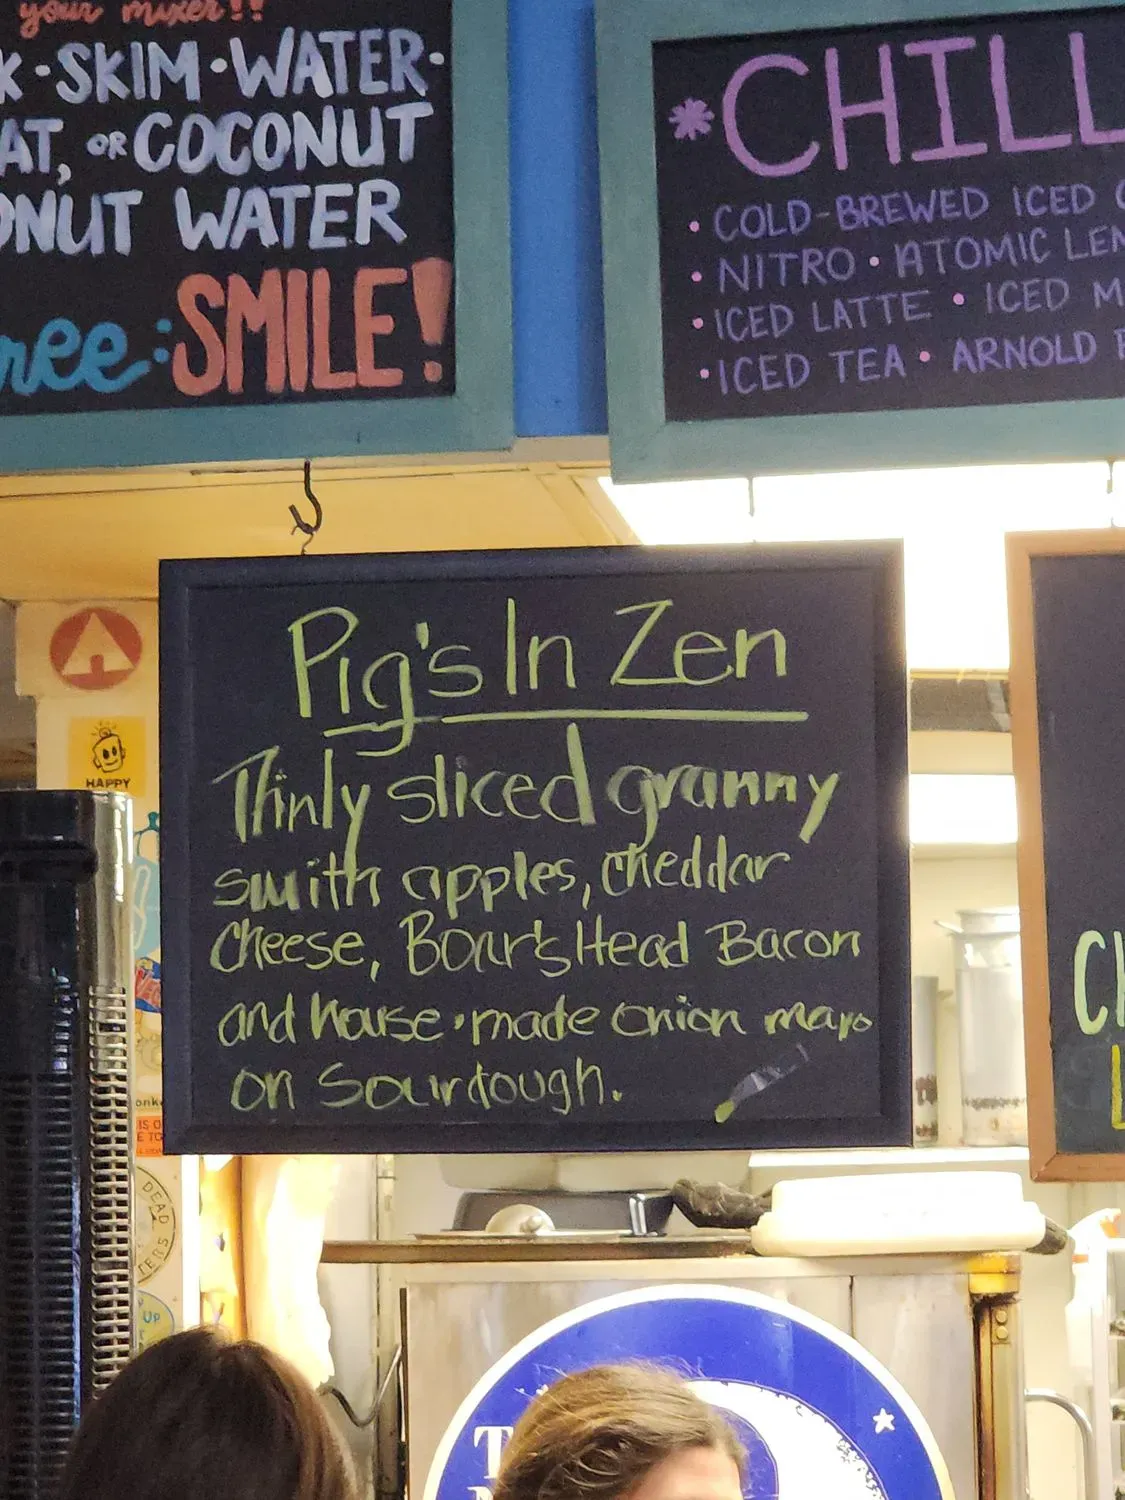 your mixer!!
SKIM • WATER •
OR COCONUT
WATER
SMILE!
*CHILL
• COLD-BREWED ICED
• NITRO • ATOMIC
• ICED LATTE • ICED
• ICED TEA • ARNOLD
Pig's In Zen
Thinly sliced granny
smith apples, cheddar
cheese, Boar's Head Bacon
and house-made onion mayo
on Sourdough.
HAPPY
DEAD
UP